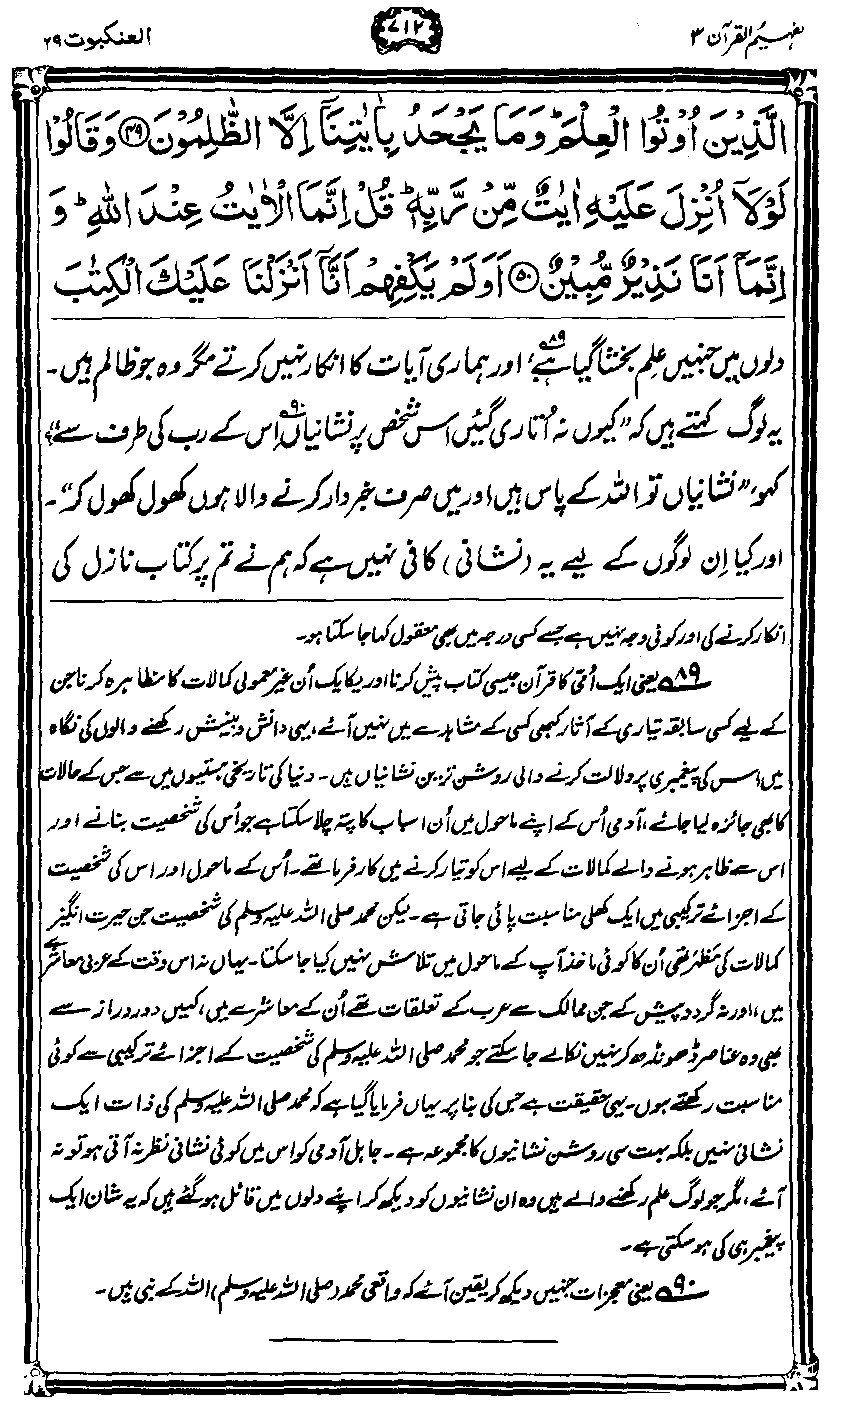 تفہیم القرآن ۳
۷۱۲
العنکبوت ۲۹
الَّذِيْنَ اُوْتُوا الْعِلْمَ ؕ وَمَا يَجْحَدُ بِاٰيٰتِنَاۤ اِلَّا الظّٰلِمُوْنَ ﴿۴۹﴾ وَقَالُوْا
لَوْلَاۤ اُنْزِلَ عَلَيْهِ اٰيٰتٌ مِّنْ رَّبِّهٖ ؕ قُلْ اِنَّمَا الْاٰيٰتُ عِنْدَ اللّٰهِ ؕ وَ
اِنَّمَاۤ اَنَا نَذِيْرٌ مُّبِيْنٌ ﴿۵۰﴾ اَوَلَمْ يَكْفِهِمْ اَنَّاۤ اَنْزَلْنَا عَلَيْكَ الْكِتٰبَ
دلوں میں جنہیں علم بخشا گیا ہے،۸۹ اور ہماری آیات کا انکار نہیں کرتے مگر وہ جو ظالم ہیں۔
یہ لوگ کہتے ہیں کہ ”کیوں نہ اُتاری گئیں اس شخص پر نشانیاں۹۰ اِس کے رب کی طرف سے“؟
کہو، ”نشانیاں تو اللہ کے پاس ہیں اور میں صرف خبردار کرنے والا ہوں کھول کھول کر“۔
اور کیا اِن لوگوں کے لیے یہ (نشانی) کافی نہیں ہے کہ ہم نے تم پر کتاب نازل کی
انکار کرنے کی اور کوئی وجہ نہیں ہے جسے کسی درجہ میں بھی معقول کہا جا سکتا ہو۔
۸۹ یعنی ایک اُمّی کا قرآن جیسی کتاب پیش کرنا اور یکایک اُن غیر معمولی کمالات کا مظاہرہ کرنا جن
کے لیے کسی سابقہ تیاری کے آثار کبھی کسی کے مشاہدے میں نہیں آئے، یہی دانش و بینش رکھنے والوں کی نگاہ
میں اس کی پیغمبری پر دلالت کرنے والی روشن ترین نشانیاں ہیں۔ دنیا کی تاریخی ہستیوں میں سے جس کے حالات
کا بھی جائزہ لیا جائے، آدمی اُس کے اپنے ماحول میں اُن اسباب کا پتہ چلا سکتا ہے جو اُس کی شخصیت بنانے اور
اس سے ظاہر ہونے والے کمالات کے لیے اس کو تیار کرنے میں کارفرما تھے۔ اُس کے ماحول اور اس کی شخصیت
کے اجزائے ترکیبی میں ایک کھلی مناسبت پائی جاتی ہے۔ لیکن محمد صلی اللہ علیہ وسلم کی شخصیت جن حیرت انگیز
کمالات کی مَظہر تھی اُن کا کوئی ماخذ آپ کے ماحول میں تلاش نہیں کیا جا سکتا۔ یہاں نہ اس وقت کے عربی معاشرے
میں، اور نہ گرد و پیش کے جن ممالک سے عرب کے تعلقات تھے اُن کے معاشرے میں، کہیں دور دراز سے
بھی وہ عناصر ڈھونڈھ کر نہیں نکالے جا سکتے جو محمد صلی اللہ علیہ وسلم کی شخصیت کے اجزائے ترکیبی سے کوئی
مناسبت رکھتے ہوں۔ یہی حقیقت ہے جس کی بنا پر یہاں فرمایا گیا ہے کہ محمد صلی اللہ علیہ وسلم کی ذات ایک
نشانی نہیں بلکہ بہت سی روشن نشانیوں کا مجموعہ ہے۔ جاہل آدمی کو اس میں کوئی نشانی نظر نہ آتی ہو تو نہ
آئے، مگر جو لوگ علم رکھنے والے ہیں وہ ان نشانیوں کو دیکھ کر اپنے دلوں میں قائل ہو گئے ہیں کہ یہ شان ایک
پیغمبر ہی کی ہو سکتی ہے۔
۹۰ یعنی معجزات جنہیں دیکھ کر یقین آئے کہ واقعی محمد (صلی اللہ علیہ وسلم) اللہ کے نبی ہیں۔